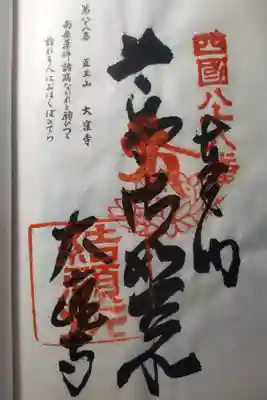 四國八十八番
奉納
大窪寺
結願所
第八十八番 医王山 大窪寺
南無薬師諸病なかれと願ひつつ
詣れる人はおほくぼのてら